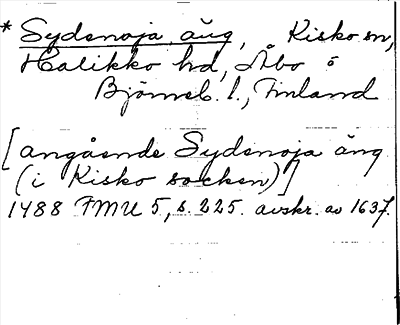 * Sydenoja äng, Kisko sn,
Halikko hd, Åbo o
Björneb. l., Finland
[angående Sydenoja äng
(i Kisko socken)]
1488 FMU 5, s. 225. avskr. av 1637.